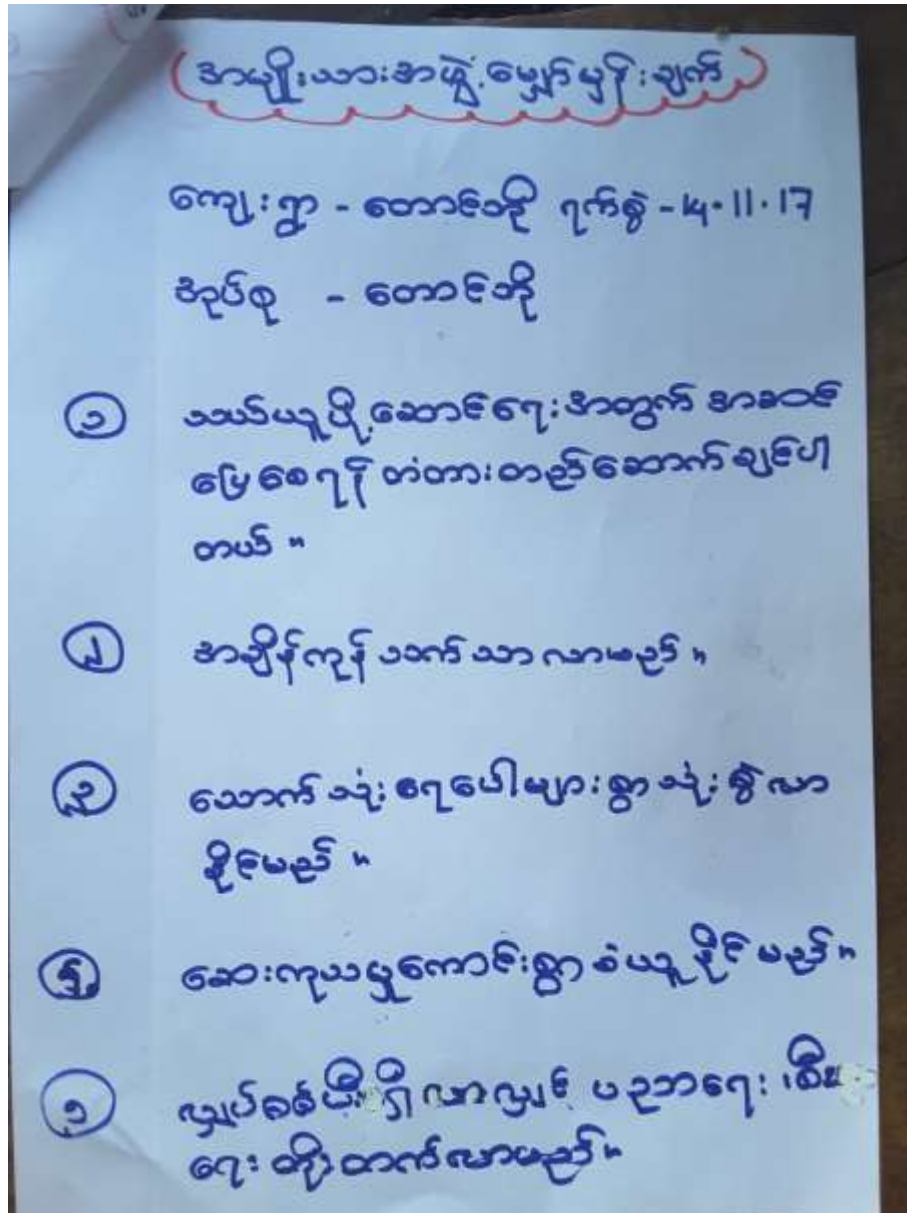 (အမျိုးသားအဖွဲ့မျှော်မှန်းချက်)
ကျေးရွာ - တောင်ဘို ရက်စွဲ - 14.11.17
အုပ်စု - တောင်ဘို
၁ သယ်ယူပို့ဆောင်ရေးအတွက် အဆင်
ပြေစေရန် တံတားတည်ဆောက်ချင်ပါ
တယ်။
၂ အချိန်ကုန်သက်သာလာမည်။
၃ သောက်သုံးရေပေါများစွာသုံးစွဲလာ
နိုင်မည်။
၄ ဆေးကုသမှုကောင်းစွာခံယူနိုင်မည်။
၅ လျှပ်စစ်မီးရှိလာလျှင် ပညာရေး စီး
ရေး တိုးတက်လာမည်။